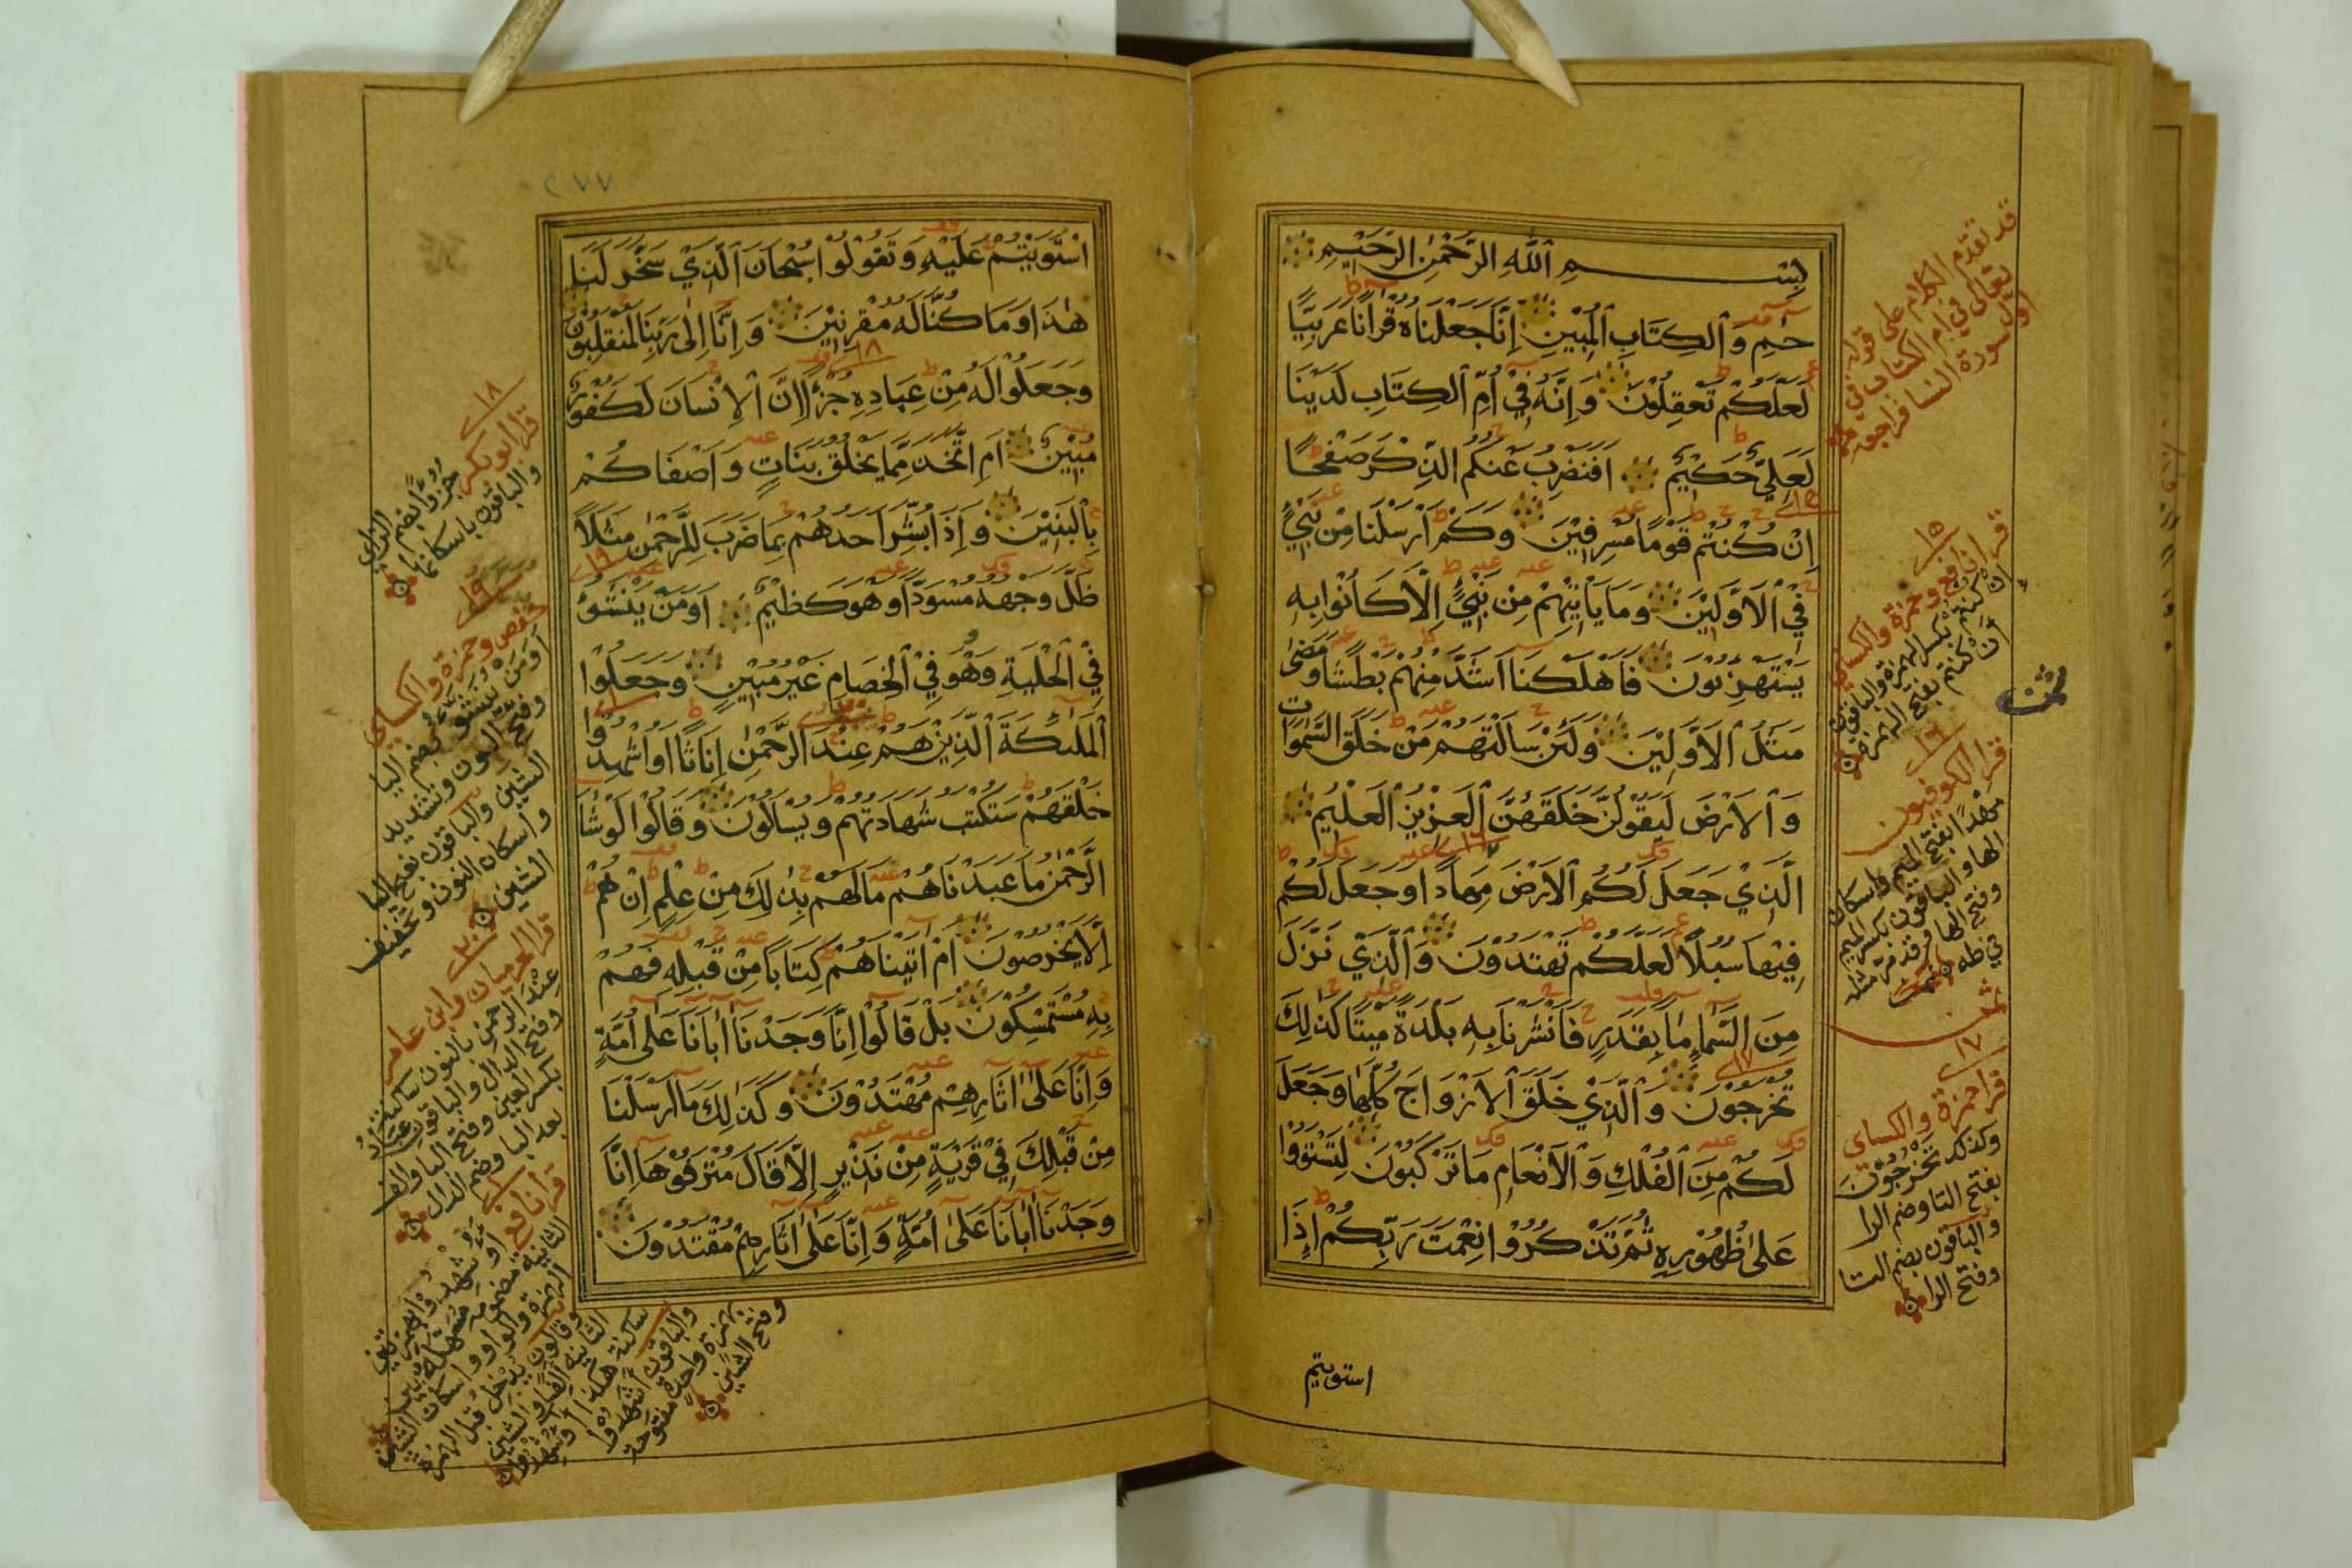 بِسْمِ ٱللَّهِ الرَّحْمٰنِ الرَّحِيْمِ
حٰمٓ وَٱلْكِتَابِ ٱلْمُبِيْنِ اِنَّا جَعَلْنَاهُ قُرْاٰنًا عَرَبِيًّا
لَعَلَّكُمْ تَعْقِلُوْنَ وَاِنَّهُ فِيْٓ اُمِّ ٱلْكِتَابِ لَدَيْنَا
لَعَلِيٌّ حَكِيْمٌ اَفَنَضْرِبُ عَنْكُمُ الذِّكْرَ صَفْحًا
اِنْ كُنْتُمْ قَوْمًا مُسْرِفِيْنَ وَكَمْ اَرْسَلْنَا مِنْ نَبِيٍّ
فِيْ ٱلْاَوَّلِيْنَ وَمَا يَأْتِيْهِمْ مِنْ نَبِيٍّ اِلَّا كَانُوْا بِهِ
يَسْتَهْزِئُوْنَ فَاَهْلَكْنَآ اَشَدَّ مِنْهُمْ بَطْشًا وَمَضٰى
مَثَلُ ٱلْاَوَّلِيْنَ وَلَئِنْ سَاَلْتَهُمْ مَنْ خَلَقَ السَّمٰوَاتِ
وَٱلْاَرْضَ لَيَقُوْلُنَّ خَلَقَهُنَّ ٱلْعَزِيْزُ ٱلْعَلِيْمُ
الَّذِيْ جَعَلَ لَكُمُ ٱلْاَرْضَ مِهَادًا وَجَعَلَ لَكُمْ
فِيْهَا سُبُلًا لَعَلَّكُمْ تَهْتَدُوْنَ وَٱلَّذِيْ نَزَّلَ
مِنَ السَّمَآءِ مَآءً بِقَدَرٍ فَاَنْشَرْنَا بِهِ بَلْدَةً مَيْتًا كَذٰلِكَ
تُخْرَجُوْنَ وَٱلَّذِيْ خَلَقَ ٱلْاَزْوَاجَ كُلَّهَا وَجَعَلَ
لَكُمْ مِنَ ٱلْفُلْكِ وَٱلْاَنْعَامِ مَا تَرْكَبُوْنَ لِتَسْتَوُوْا
عَلٰى ظُهُوْرِهِ ثُمَّ تَذْكُرُوْا نِعْمَتَ رَبِّكُمْ اِذَا
استويتم
قد تقدم الكلام على قوله
تعالى في ام الكتاب في
اول سورة النسا فراجعه
١٥
قرا نافع وحمزة والكساي
اِن كنتم بكسر الهمزة والباقون
اَن كنتم بفتح الهمزة
ثمن
١٦
قرا الكوفيون
مَهْدًا بفتح الميم واسكان
الها والباقون بكسر الميم
وفتح الها وقد مر مثله
في طه
ثمن
١٧
قرا حمزة والكساي
وكذلك تَخْرُجُوْنَ
بفتح التا وضم الرا
والباقون بضم التا
وفتح الرا
٢٧٧
اسْتَوَيْتُمْ عَلَيْهِ وَتَقُوْلُوْا سُبْحَانَ ٱلَّذِيْ سَخَّرَ لَنَا
هٰذَا وَمَا كُنَّا لَهُ مُقْرِنِيْنَ وَاِنَّآ اِلٰى رَبِّنَا لَمُنْقَلِبُوْنَ
وَجَعَلُوْا لَهُ مِنْ عِبَادِهِ جُزْءًا اِنَّ ٱلْاِنْسَانَ لَكَفُوْرٌ
مُبِيْنٌ اَمِ اتَّخَذَ مِمَّا يَخْلُقُ بَنَاتٍ وَاَصْفَاكُمْ
بِٱلْبَنِيْنَ وَاِذَا بُشِّرَ اَحَدُهُمْ بِمَا ضَرَبَ لِلرَّحْمٰنِ مَثَلًا
ظَلَّ وَجْهُهُ مُسْوَدًّا وَهُوَ كَظِيْمٌ اَوَمَنْ يُنَشَّؤُ
فِيْ ٱلْحِلْيَةِ وَهُوَ فِيْ ٱلْخِصَامِ غَيْرُ مُبِيْنٍ وَجَعَلُوْا
ٱلْمَلٰٓئِكَةَ ٱلَّذِيْنَ هُمْ عِنْدَ الرَّحْمٰنِ اِنَاثًا اَوُشْهِدُوْا
خَلْقَهُمْ سَتُكْتَبُ شَهَادَتُهُمْ وَيُسْاَلُوْنَ وَقَالُوْا لَوْ شَآءَ
الرَّحْمٰنُ مَا عَبَدْنَاهُمْ مَا لَهُمْ بِذٰلِكَ مِنْ عِلْمٍ اِنْ هُمْ
اِلَّا يَخْرُصُوْنَ اَمْ اٰتَيْنَاهُمْ كِتَابًا مِنْ قَبْلِهِ فَهُمْ
بِهِ مُسْتَمْسِكُوْنَ بَلْ قَالُوْٓا اِنَّا وَجَدْنَآ اٰبَآءَنَا عَلٰٓى اُمَّةٍ
وَاِنَّا عَلٰٓى اٰثَارِهِمْ مُهْتَدُوْنَ وَكَذٰلِكَ مَآ اَرْسَلْنَا
مِنْ قَبْلِكَ فِيْ قَرْيَةٍ مِنْ نَذِيْرٍ اِلَّا قَالَ مُتْرَفُوْهَآ اِنَّا
وَجَدْنَآ اٰبَآءَنَا عَلٰٓى اُمَّةٍ وَاِنَّا عَلٰٓى اٰثَارِهِمْ مُقْتَدُوْنَ
١٨
قرا ابو بكر جُزُؤًا بضم الزاي
والباقون باسكانها
١٩
حفص وحمزة والكساي
اَوَمَنْ يُنَشَّؤُ بضم اليا
وفتح النون وتشديد
الشين والباقون بفتح اليا
واسكان النون وتخفيف
الشين
٢٠
قرا الحرميان وابن عامر
عِنْدَ الرحمن بالنون ساكنة
وفتح الدال والباقون عباد
بكسر العين وفتح البا والف
بعد البا وضم الدال
٢١
قرا نافع
والباقون اَشَهِدوا
بهمزة واحدة مفتوحة
وفتح الشين